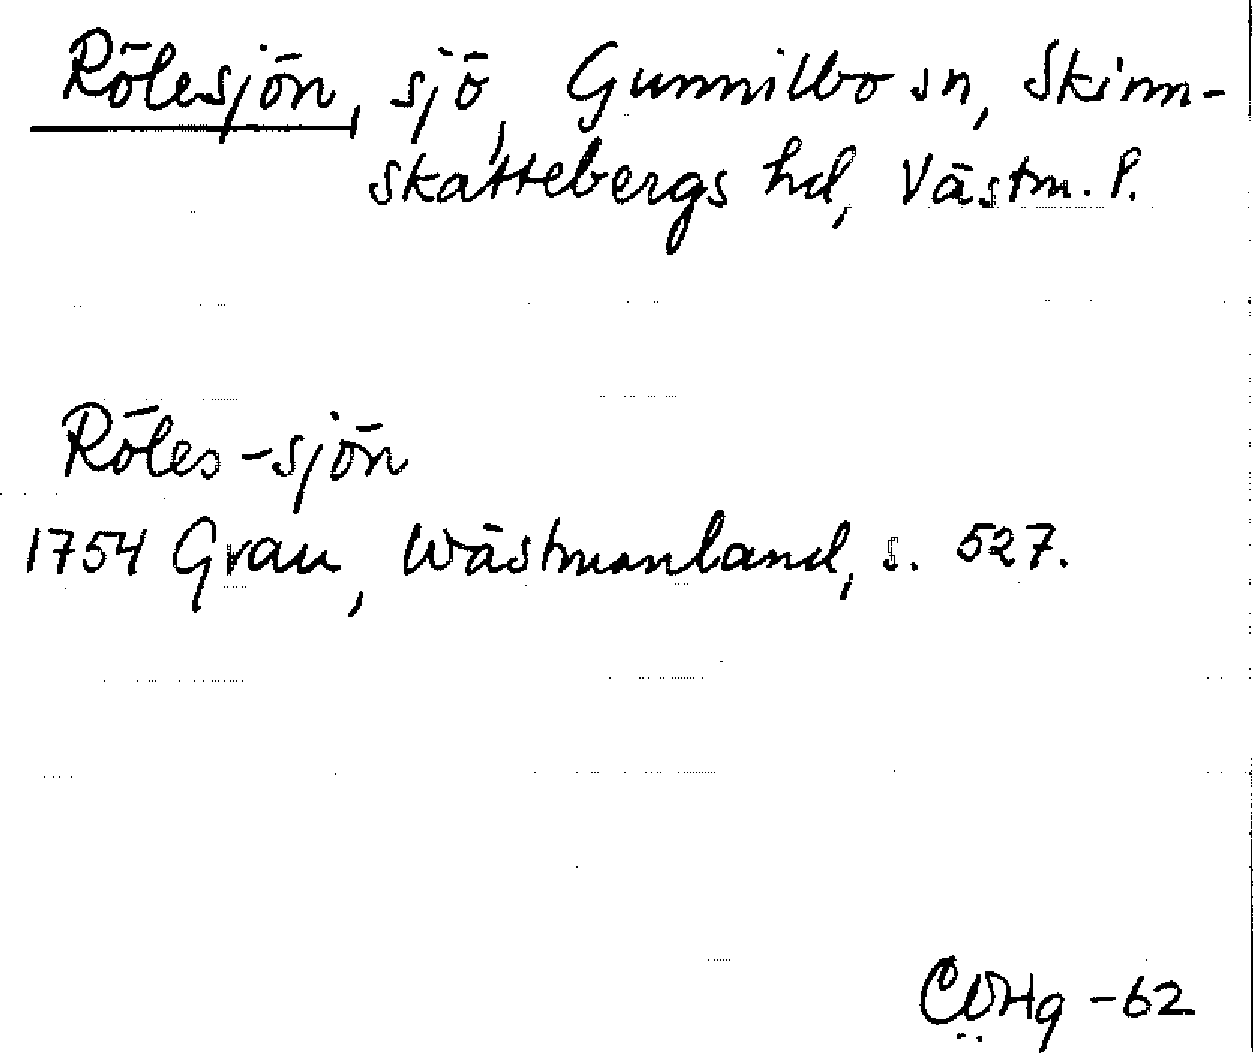 Rölesjön, sjö, Gunnilbo sn, Skinn-
skattebergs hd, Västm. l.
Röles-sjön
1754 Grau, Wästmanland, s. 527.
-62